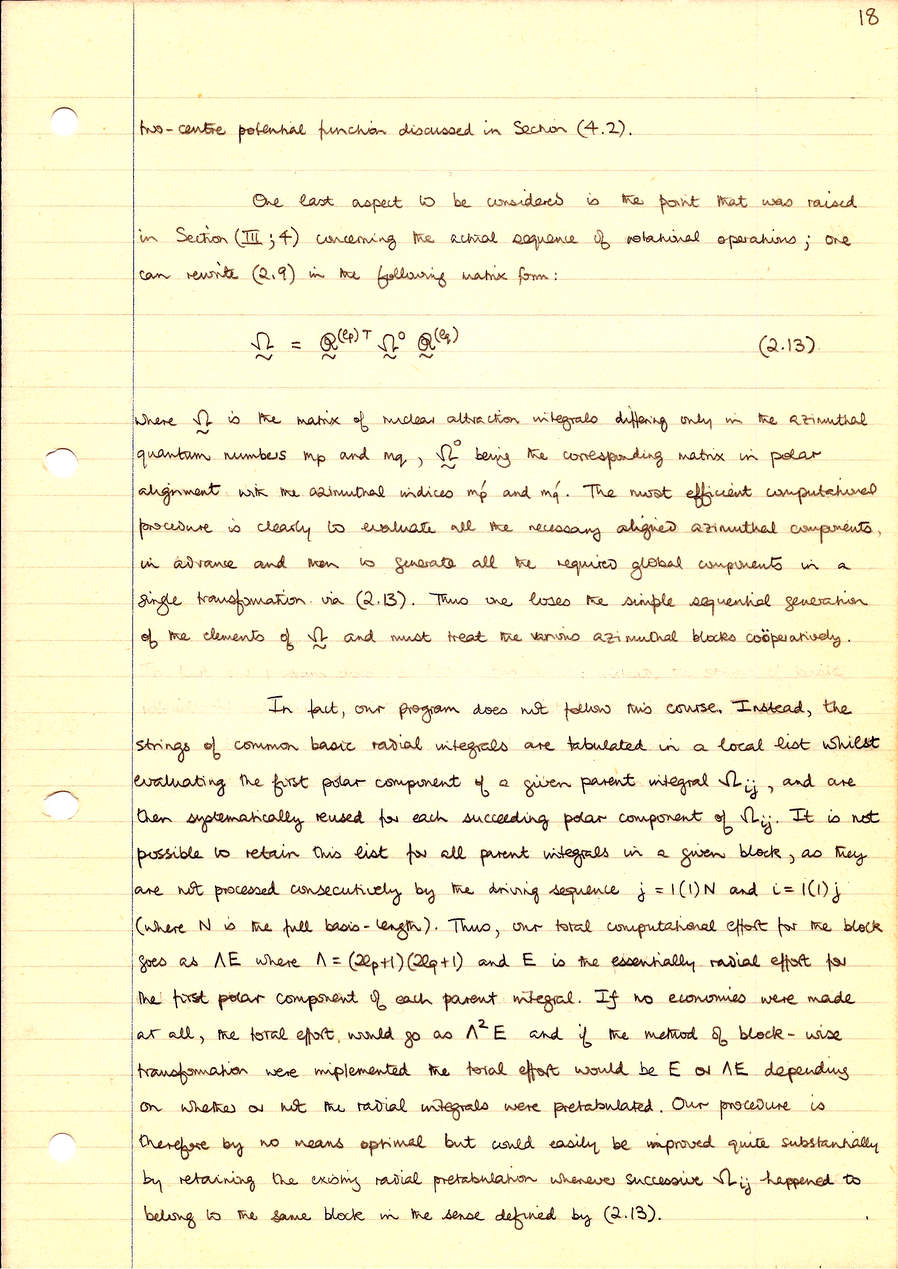 18
two-centre potential function discussed in Section (4.2).
One last aspect to be considered is the point that was raised
in Section (III; 4) concerning the actual sequence of rotational operations; one
can rewrite (2.9) in the following matrix form:
Ω = R^(ℓp)T Ω⁰ R^(ℓq) (2.13)
where Ω is the matrix of nuclear attraction integrals differing only in the azimuthal
quantum numbers mp and mq, Ω⁰ being the corresponding matrix in polar
alignment with the azimuthal indices mp' and mq'. The most efficient computational
procedure is clearly to evaluate all the necessary aligned azimuthal components,
in advance and then to generate all the required global components in a
single transformation via (2.13). Thus one loses the simple sequential generation
of the elements of Ω and must treat the various azimuthal blocks coöperatively.
In fact, our program does not follow this course. Instead, the
strings of common basic radial integrals are tabulated in a local list whilst
evaluating the first polar component of a given parent integral Ωij, and are
then systematically reused for each succeeding polar component of Ωij. It is not
possible to retain this list for all parent integrals in a given block, as they
are not processed consecutively by the driving sequence j = 1(1)N and i = 1(1)j
(where N is the full basis-length). Thus, our total computational effort for the block
goes as ΛE where Λ = (2ℓp+1)(2ℓq+1) and E is the essentially radial effort for
the first polar component of each parent integral. If no economies were made
at all, the total effort would go as Λ²E and if the method of block-wise
transformation were implemented the total effort would be E or ΛE depending
on whether or not the radial integrals were pretabulated. Our procedure is
therefore by no means optimal but could easily be improved quite substantially
by retaining the existing radial pretabulation whenever successive Ωij happened to
belong to the same block in the sense defined by (2.13).